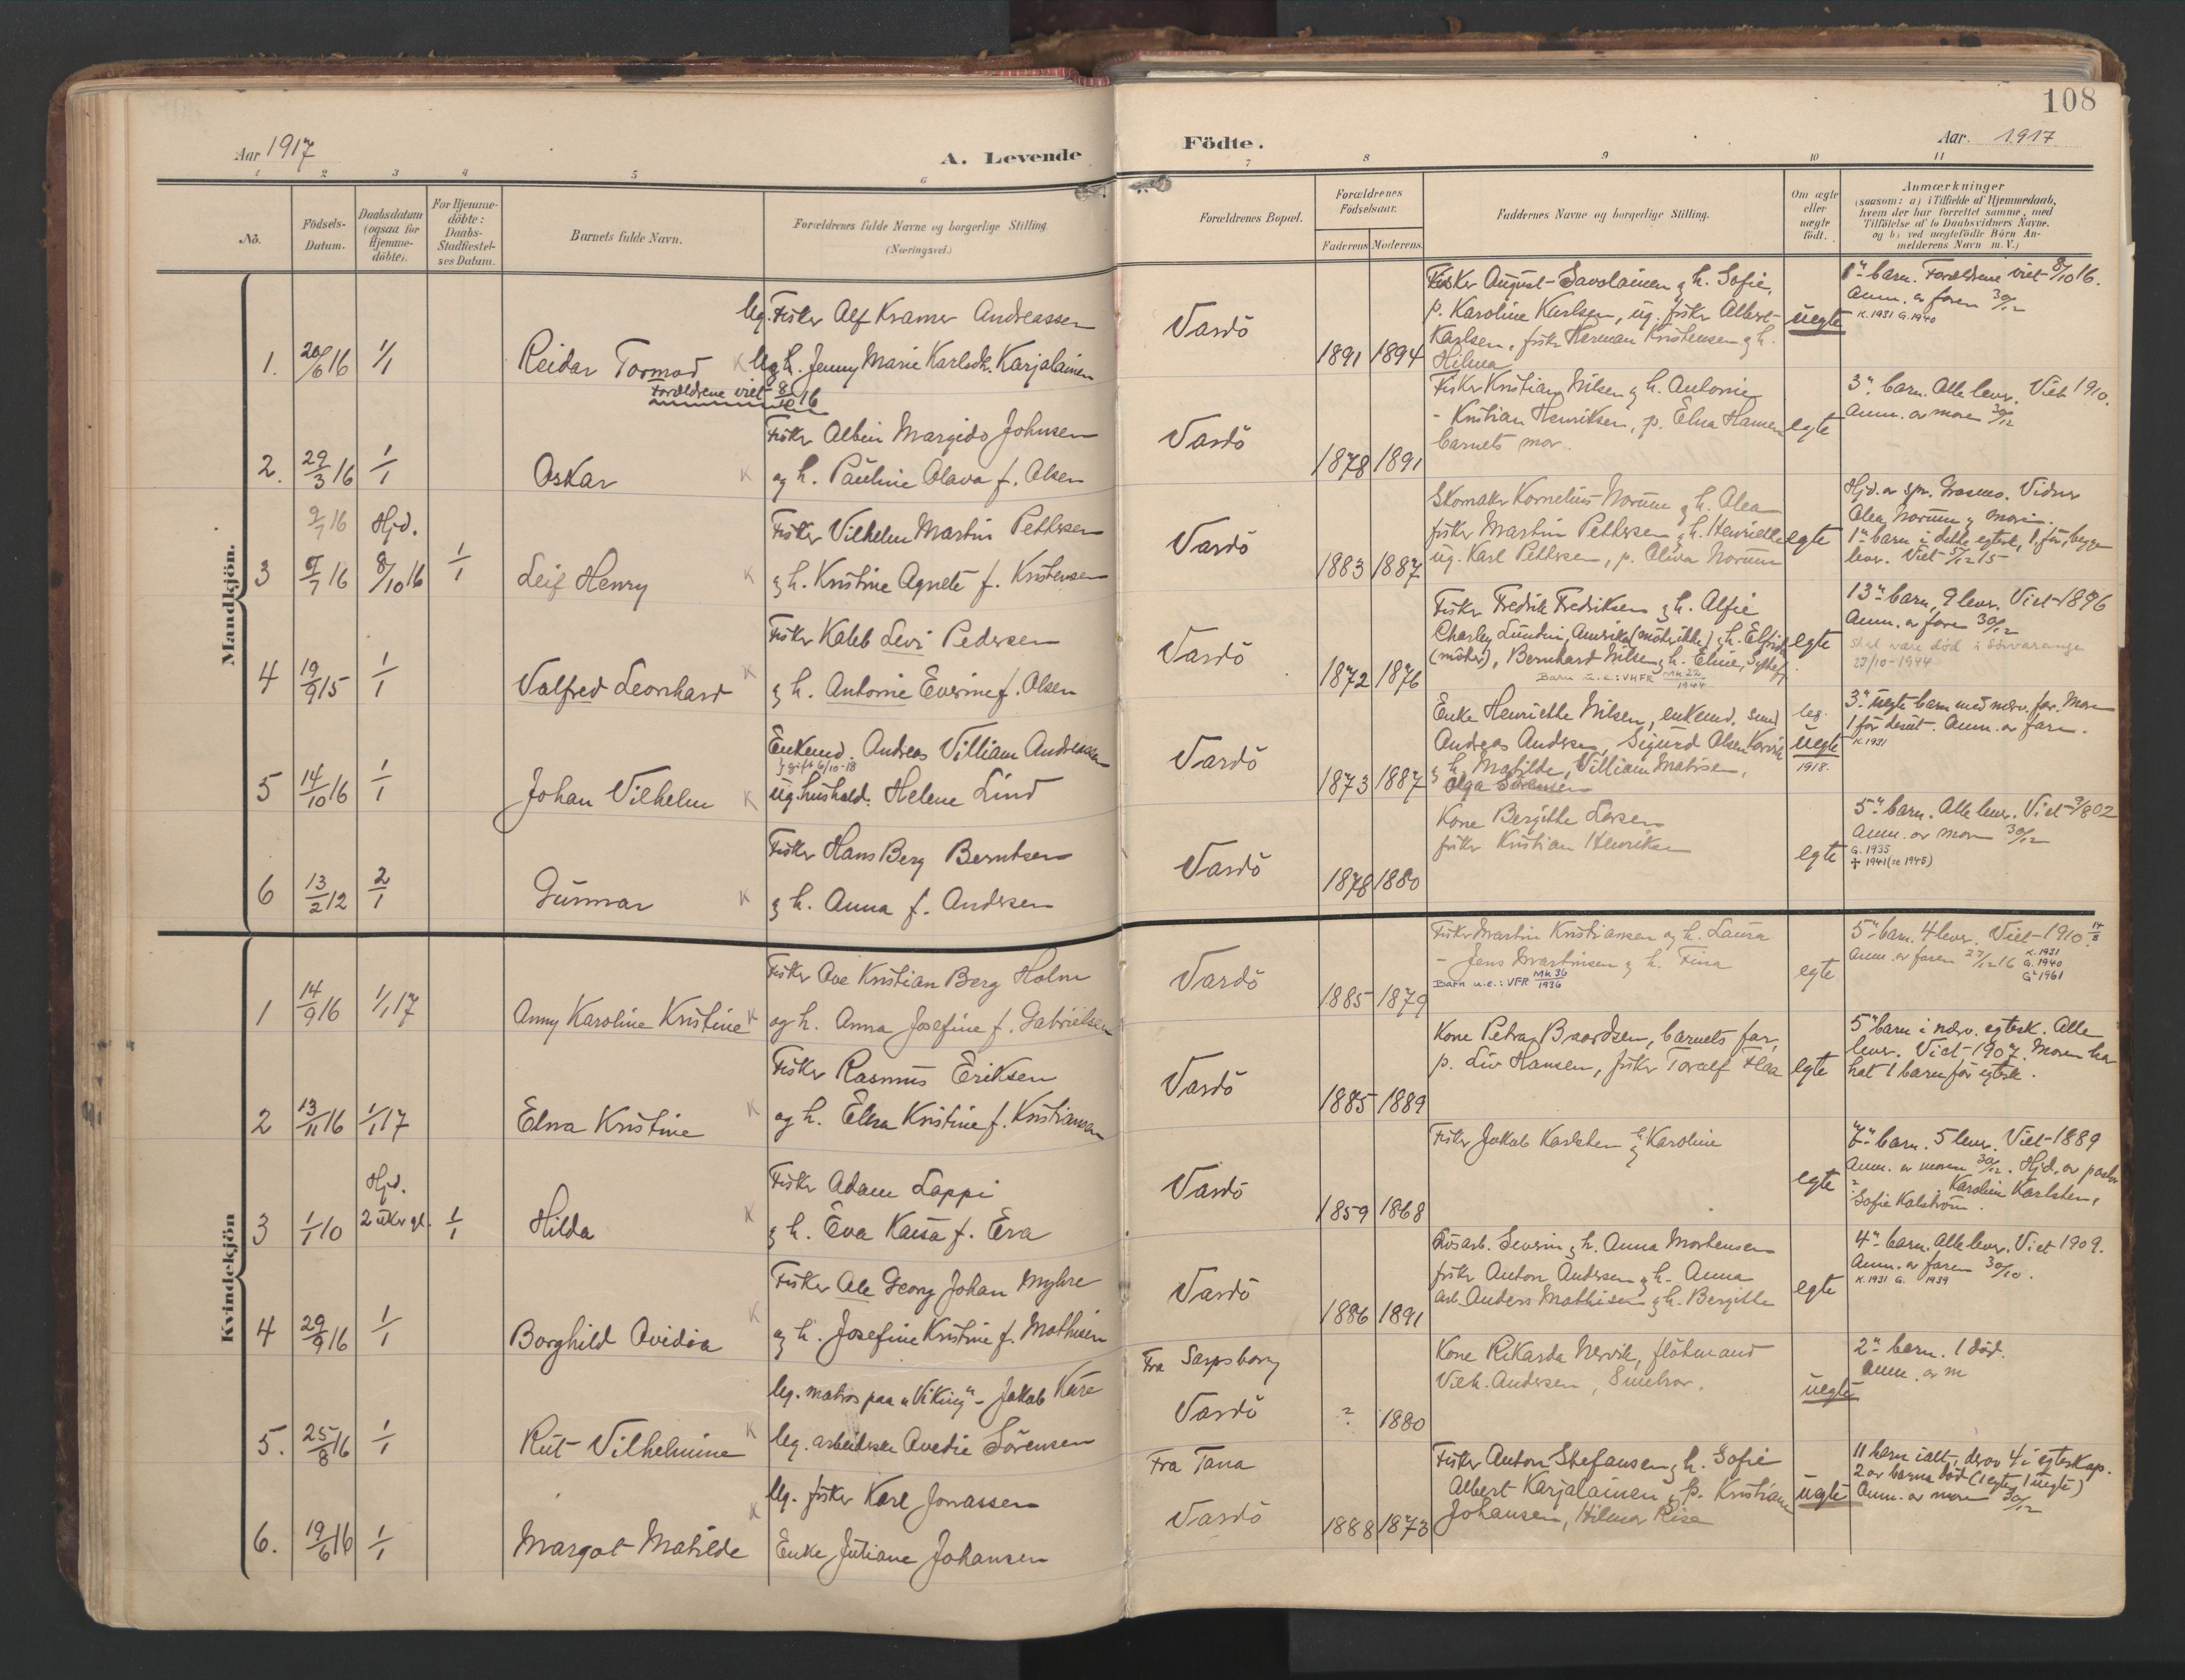 108
Aar 1917
A. Levende
Födte.
Aar. 1917
1 2 3 4 5 6 7 8 9 10 11
No.
Födsels-
Datum.
Daabsdatum
(ogsaa for
Hjemme-
döbte).
For Hjemme-
döbte:
Daabs-
Stadfæstel-
ses Datum.
Barnets fulde Navn.
Forældrenes fulde Navne og borgerlige Stilling.
(Næringsvei.)
Forældrenes Bopæl.
Forældrenes
Födselsaar.
Faderens Moderens
Faddernes Navne og borgerlige Stilling.
Om ægte
eller
uægte
födt.
Anmærkninger
(saasom: a) i Tilfælde af Hjemmedaab,
hvem der har forrettet samme, med
Tilföielse af to Daabsvidners Navne.
og b) ved uægtefödte Börn An-
melderens Navn m. V.)
Mandkjön.
1. 20/6 16 1/1 Reidar Tormod K
Forældrene viet 8/10 16
ug. Fisker Alf Kramer Andreassen
ug h. Jenny Marie Karlsdt. Karjalainen
Vardö 1891 1894
Fisker August Savolainen og h. Sofie,
p. Karoline Karlsen, ug. fisker Albert
Karlsen, fisker Herman Kristensen og h.
Hilma
uegte
1ste barn. Forældrene viet 8/10 16.
Anm. av faren 30/12
K. 1931 G. 1940
2. 29/3 16 1/1 Oskar K
Fisker Albin Margido Johnsen
og h. Pauline Olava f. Olsen
Vardö 1878 1891
Fisker Kristian Nilsen og h. Antonie
- Kristian Henriksen, p. Elna Hansen
barnets mor.
egte
3" barn. Alle lever. Viet 1910.
Anm. av moren 30/12
9/7 16 Hjd.
3 9/7 16 8/10 16 1/1 Leif Henry K
Fisker Vilhelm Martin Pettersen
og h. Kristine Agnete f. Kristensen
Vardö 1883 1887
Skomaker Kornelius Norum og h. Alea
fisker Martin Pettersen og h. Henriette
ug. Karl Pettersen, p. Oliva Norum
egte
Hjd. av spr. Grasmo. Vidner
Olea Norum og moren.
1" barn i dette egtesk, 1 för, begge
lever. Viet 5/12 15
4 19/9 15 1/1 Valfred Leonhard K
Fisker Kaleb Levi Pedersen
og h. Antonie Everine f. Olsen
Vardö 1872 1876
Fisker Fredrik Fredriksen og h. Alfie
Charley Lundin, Amerika (mötte ikke) og h. Elfrida
(mötte), Bernhard Nilsen og h. Eline, Syltefj.
Barn u.e.: VHFR Mk 22 1944
egte
13" barn, 9 lever. Viet 1896
Anm. av faren 30/12
skal være död i Sörvaranger
27/10-1944
5 14/10 16 1/1 Johan Vilhelm K
Enkemd. Andreas Villiam Andreassen
gift 6/10-18
ug. hushold. Helene Lind
Vardö 1873 1887
Enke Henriette Nilsen, enkemd. smed
Andreas Andersen, Sigurd Olsen Karvik
og h. Matilde, Villiam Matisen,
Olga Sörensen
leg. uegte 1918.
3" uegte barn med nærv. far. Moren
1 för desuten. Anm. av faren.
K. 1931
6 13/2 12 2/1 Gunnar K
Fisker Hans Berg Berntsen
og h. Anna f. Andersen
Vardö 1878 1880
Kone Bergitte Larsen
fisker Kristian Henriksen
egte
5" barn. Alle lever. Viet 3/8 02
Anm. av moren 30/12
G. 1935
† 1941 (se 1945)
Kvindekjön
1 14/9 16 1/1 17 Anny Karoline Kristine K
Fisker Ove Kristian Berg Holm
og h. Anna Josefine f. Gabrielsen
Vardö 1885 1879
Fisker Martin Kristiansen og h. Laura
- Jens Martinsen og h. Fina
Barn u.e.: VFR Mk 36 1936
egte
5" barn. 4 lever. Viet 1910 14/8
Anm. av faren 27/12 16 K. 1931
G. 1940
G² 1961
2 13/11 16 1/1 17 Elna Kristine K
Fisker Rasmus Eriksen
og h. Elna Kristine f. Kristiansen
Vardö 1885 1889
Kone Petra Baardsen, barnets far,
p. Liv Hansen, fisker Toralf Flaa
egte
5" barn i nærv. egtesk. Alle
lever. Viet 1907. Moren har
hat 1 barn för egtesk.
Hjd.
3 1/1 10 2 uker gl. 1/1 Hilda K
Fisker Adam Lappi
og h. Eva Kaisa f. Era
Vardö 1859 1868
Fisker Jakob Karlsten og h. Karoline
egte
7" barn. 5 lever. Viet 1889
Anm. av moren 30/12. Hjd. av
Karoline Karlsten,
Sofie Kalström.
4 29/9 16 1/1 Borghild Ovidia K
Fisker Ole Georg Johan Myhre
og h. Josefine Kristine f. Mathisen
Vardö 1886 1891
Lösarb. Severin og h. Anna Mortensen
fisker Anton Andersen og h. Anna
arb. Anders Mathisen og h. Bergitte
egte
4" barn. Alle lever. Viet 1909.
Anm. av faren 30/10.
K. 1931 G. 1939
5. 25/8 16 1/1 Rut Vilhelmine K
ug. matros paa "Viking" - Jakob Kåre
ug. arbeiderske Ovedie Sörensen
Fra Sarpsborg
Vardö ? 1880
Kone Rikarda Nervik, flötmand
Vilh. Andersen, Smelror.
uegte
2" barn. 1 död.
Anm. av m
6. 19/6 16 1/1 Margot Matilde K
ug. fisker Karl Jonassen
Enke Juliane Johansen
Fra Tana
Vardö 1888 1873
Fisker Anton Stefansen og h. Sofie
Albert Karjalainen og p. Kristiane
Johansen, Hilmar Risa
uegte
11 barn ialt, derav 4 i egteskap.
2 av barna död (1 egte, 1 uegte)
Anm. av moren 30/12